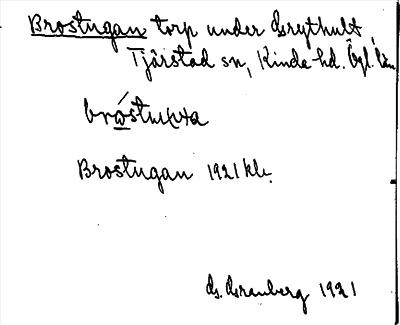 Brostugan torp under Grythult,
Tjärstad sn, Kinda hd. Ögl. län
Brostugan 1921 kb.
G. Granberg 1921